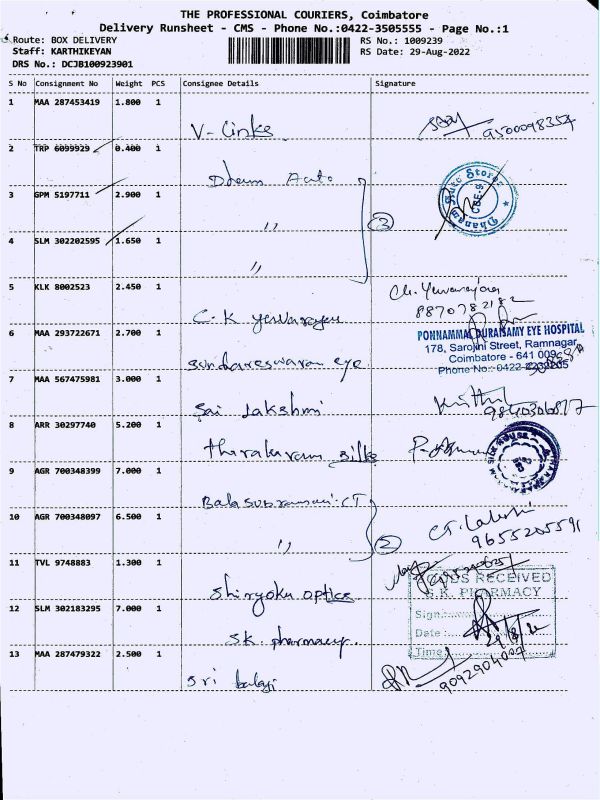 THE PROFESSIONAL COURIERS, Coimbatore
Delivery Runsheet - CMS - Phone No.:0422-3505555 - Page No.:1
Route: BOX DELIVERY
Staff: KARTHIKEYAN
DRS No.: DCJB100923901
RS No.: 1009239
RS Date: 29-Aug-2022
S No Consignment No Weight PCS Consignee Details Signature
1 MAA 287453419 1.800 1
V-Links 9500098354
2 TRP 6099929 0.400 1
Dhanam Auto
3 GPM 5197711 2.900 1
" 3
Dhanam Auto Stores
CBE-9
4 SLM 302202595 1.650 1
"
5 KLK 8002523 2.450 1
C.K Yuvarajan
8870782182
6 MAA 293722671 2.700 1
Sundareswaran eye
PONNAMMAL DURAISAMY EYE HOSPITAL
178, Sarojini Street, Ramnagar,
Coimbatore - 641 009
Phone No: 0422-
7 MAA 567475981 3.000 1
Sai Lakshmi 9840306877
8 ARR 30297740 5.200 1
tharakaram silks
9 AGR 700348399 7.000 1
Balasubramani.CT
10 AGR 700348097 6.500 1
" 2
CT. Lakshmi
9655205591
11 TVL 9748883 1.300 1
Shiryoku optics
12 SLM 302183295 7.000 1
S.K. pharmacy.
GOODS RECEIVED
S.K. PHARMACY
Sign:
Date: 29/8/22
Time:
13 MAA 287479322 2.500 1
Sri balaji 9092904007